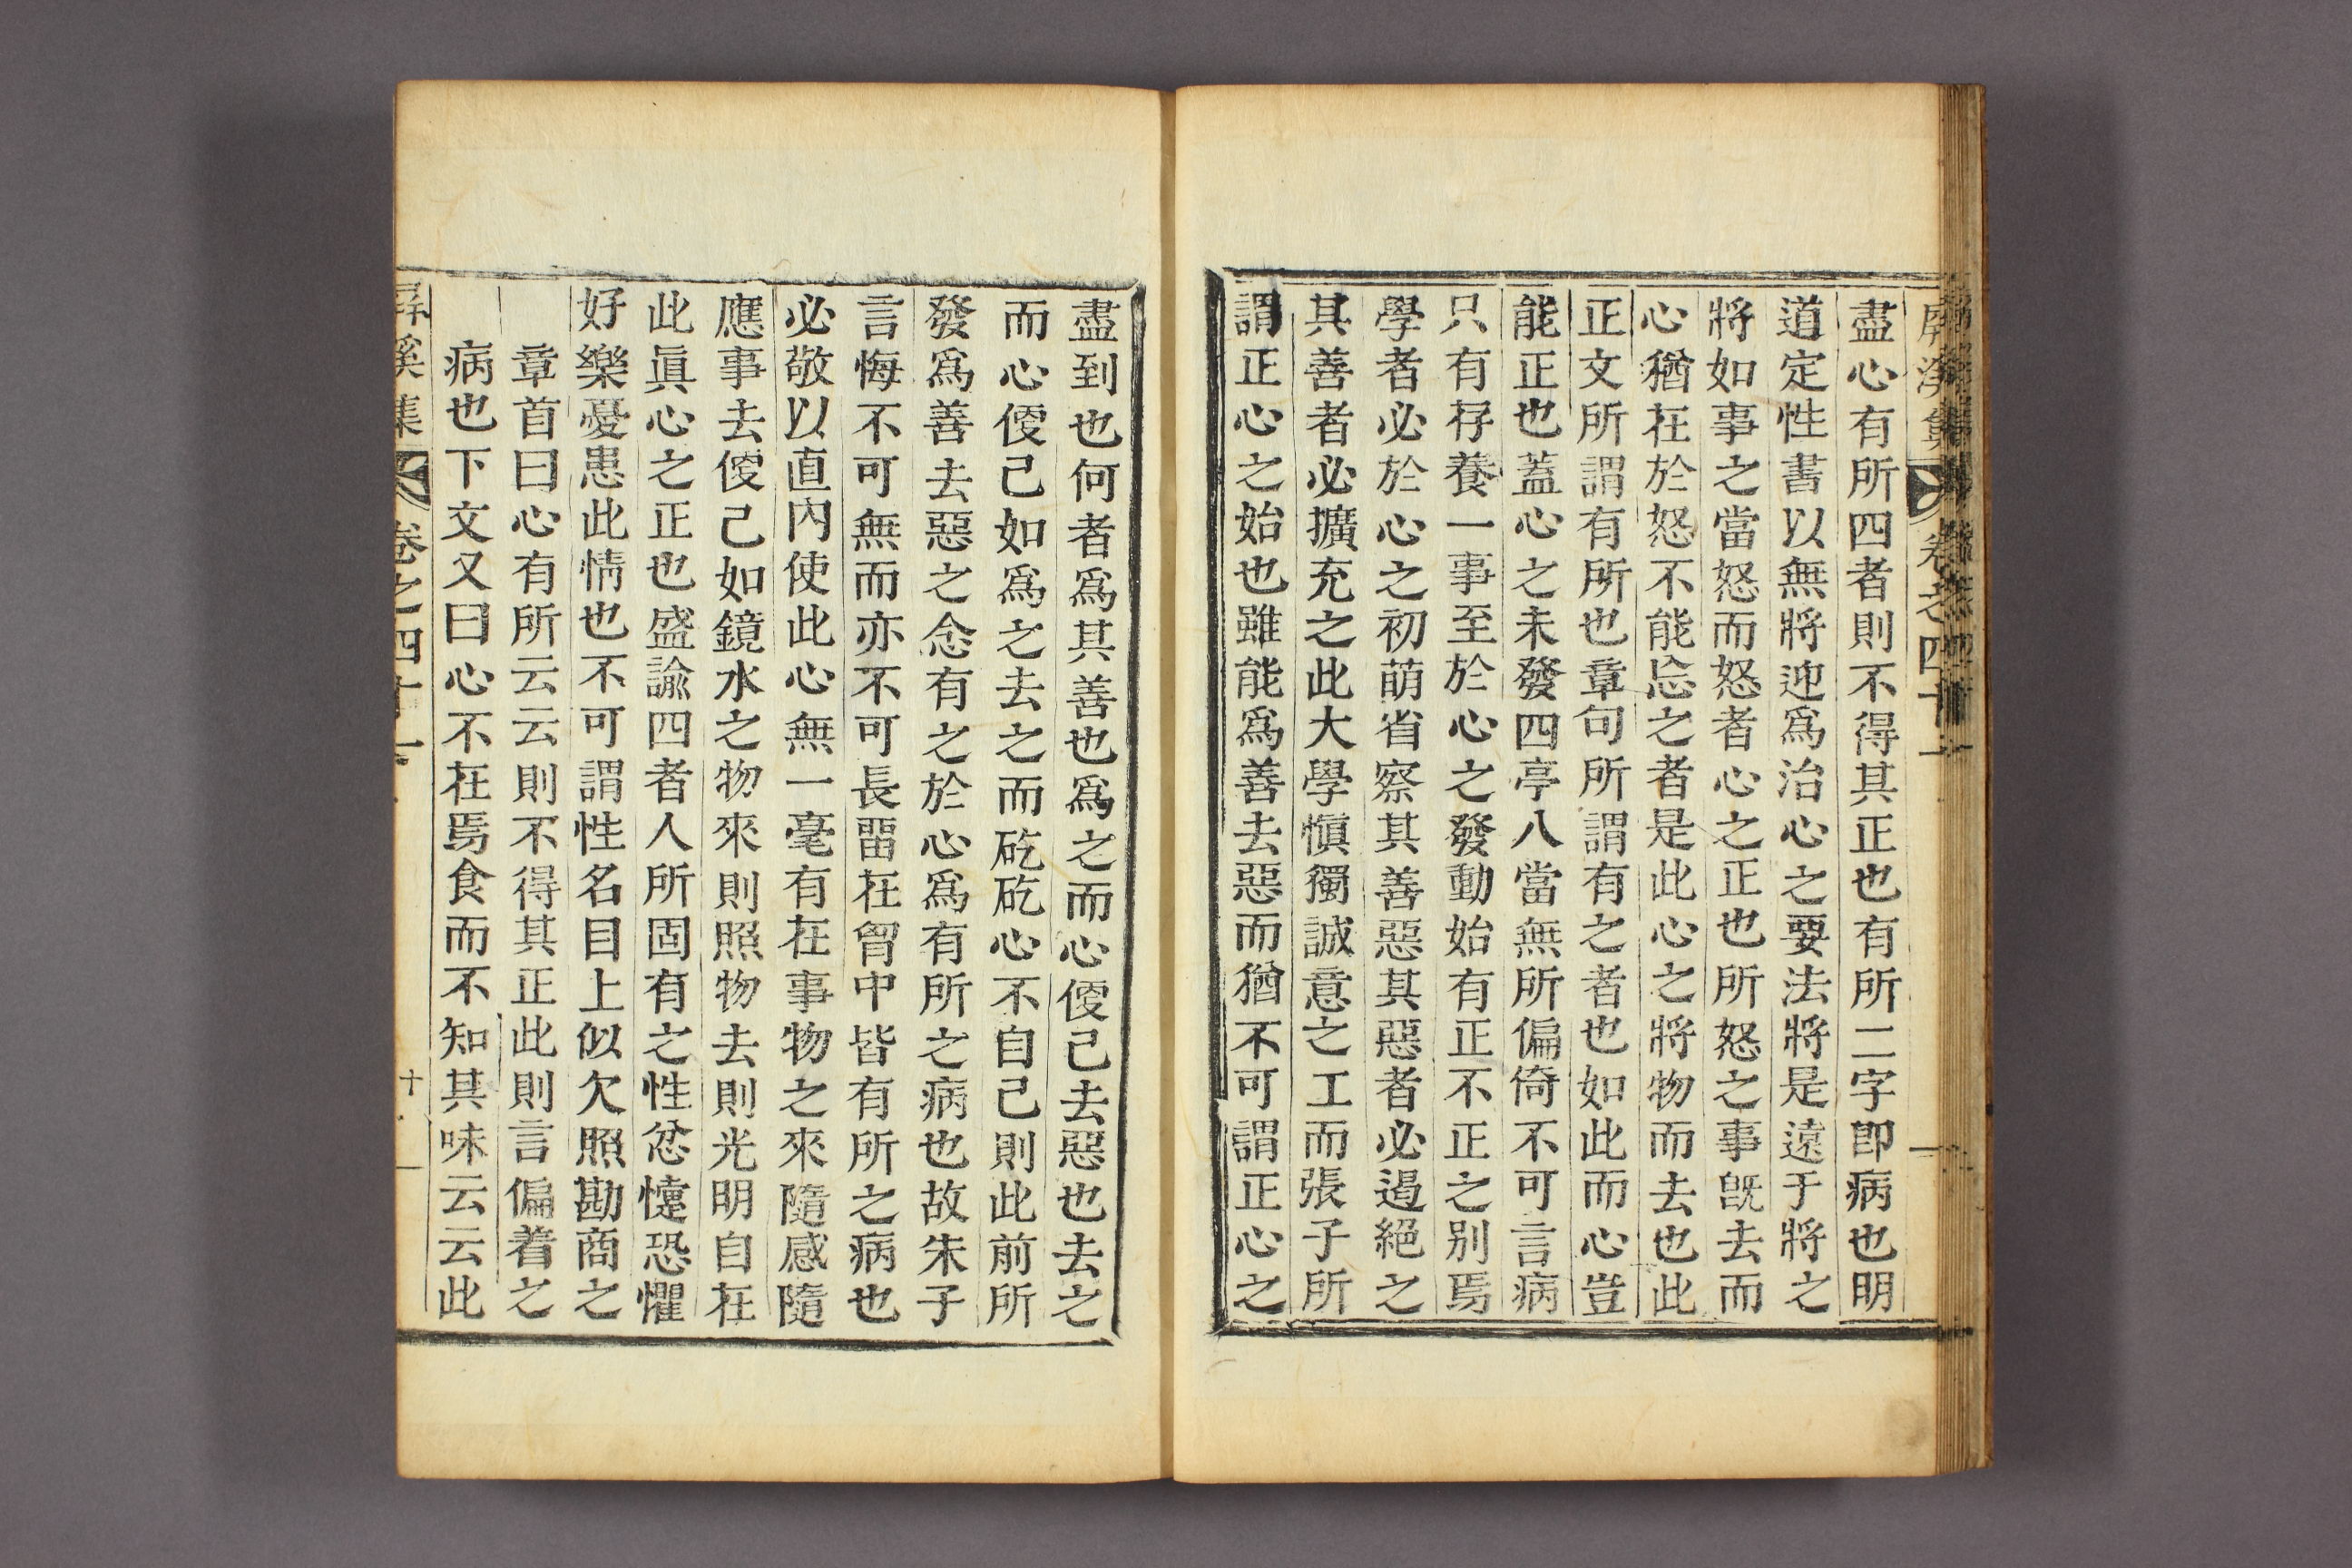 屏溪集 卷之四十一
盡心有所四者則不得其正也有所二字卽病也明
道定性書以無將迎爲治心之要法將是遠于將之
將如事之當怒而怒者心之正也所怒之事旣去而
心猶在於怒不能忘之者是此心之將物而去也此
正文所謂有所也章句所謂有之者也如此而心豈
能正也蓋心之未發四亭八當無所偏倚不可言病
只有存養一事至於心之發動始有正不正之別焉
學者必於心之初萌省察其善惡其惡者必遏絕之
其善者必擴充之此大學愼獨誠意之工而張子所
謂正心之始也雖能爲善去惡而猶不可謂正心之
盡到也何者爲其善也爲之而心便已去惡也去之
而心便已如爲之去之而矻矻心不自已則此前所
發爲善去惡之念有之於心爲有所之病也故朱子
言悔不可無而亦不可長留在胷中皆有所之病也
必敬以直內使此心無一毫有在事物之來隨感隨
應事去便已如鏡水之物來則照物去則光明自在
此眞心之正也盛諭四者人所固有之性忿懥恐懼
好樂憂患此情也不可謂性名目上似欠照勘商之
章首曰心有所云云則不得其正此則言偏着之
病也下文又曰心不在焉食而不知其味云云此
屏溪集 卷之四十一 十